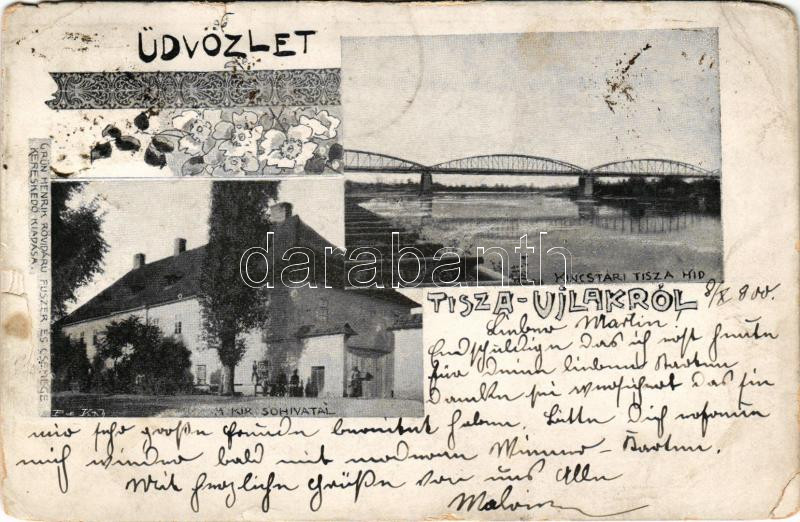 ÜDVÖZLET
GRÜN HENRIK RÖVIDÁRU FÜSZER ÉS CSEMEGE
KERESKEDŐ KIADÁSA.
KINCSTÁRI TISZA HID
darabanth.com
M. KIR. SÓHIVATAL
TISZA-UJLAKRÓL
9/X 900.
Lieber Martin
Endschuldige das ich erst heute
für deine lieben Karten
danke sei versichert das sie
mir sehr große Freude bereitet haben. Bitte dich erfreue
mich wieder bald mit modernen Wiener-Karten.
Mit herzliche Grüße von uns Alle
Malvine